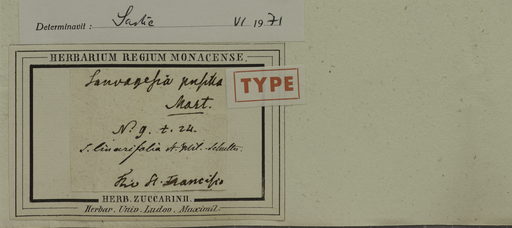 Determinavit : Sastre VI 1971
HERBARIUM REGIUM MONACENSE.
TYPE
Sauvagesia pusilla
Mart.
N. 9. t. 24.
S. linearifolia St. Hil.
Rio St. Francisco
HERB. ZUCCARINII.
Herbar. Univ. Ludov. Maximil.